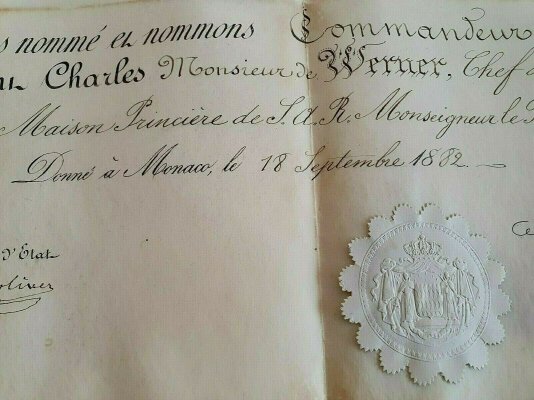 nommé et nommons Commandeur
Charles Monsieur de Werner, Chef
Maison Princière de S. A. R. Monseigneur le
Donné à Monaco, le 18 Septembre 1882
d'Etat